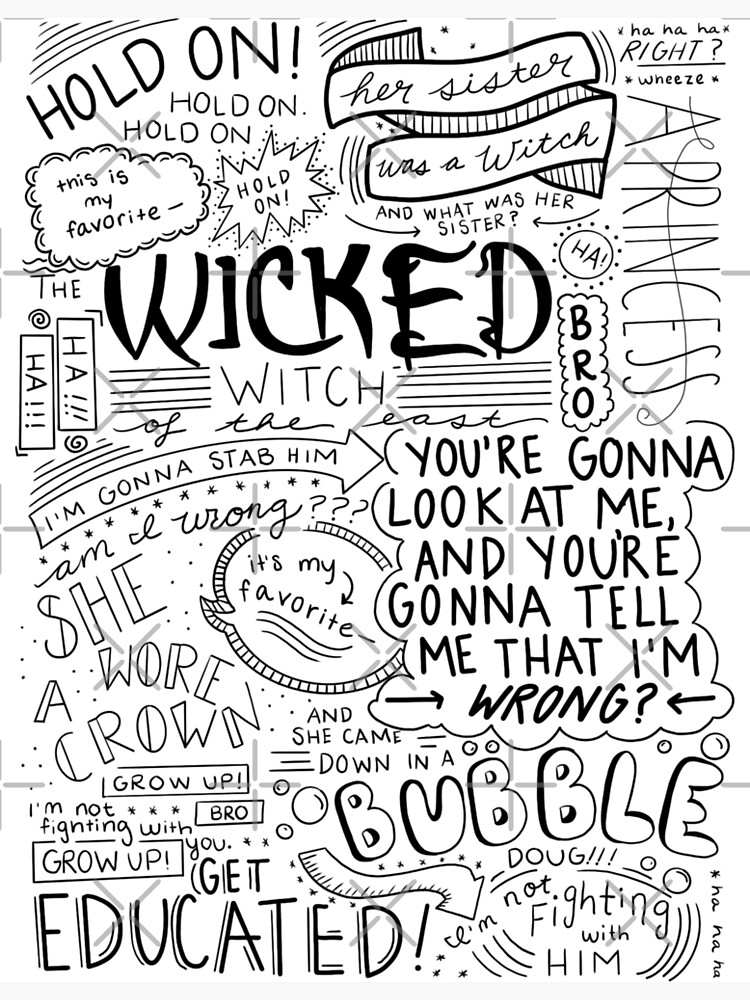 HOLD ON!
HOLD ON.
HOLD ON
this is
my
favorite —
HOLD
ON!
her sister
was a Witch
AND WHAT WAS HER
SISTER?
*ha ha ha*
RIGHT?
*wheeze*
A PRINCESS
HA!
BRO
THE
WICKED
WITCH
of the east
HA!!!
HA!!!
I'M GONNA STAB HIM
am I wrong???
YOU'RE GONNA
LOOK AT ME,
AND YOU'RE
GONNA TELL
ME THAT I'M
WRONG?
it's my
favorite —
SHE
WORE
A
CROWN
AND
SHE CAME
DOWN IN A
BUBBLE
DOUG!!!
GROW UP!
I'm not
fighting with
you.
BRO
GROW UP!
(GET
EDUCATED!
I'm not
Fighting
with
HIM
*ha ha ha